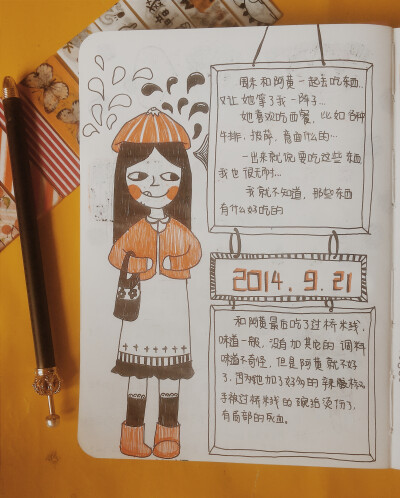 周末和阿黄一起去吃东西..
又让她等了我一阵子...
她喜欢吃西餐，比如各种
牛排、披萨、意面什么的...
一出来就说要吃这些东西
我也很无耐...
我就不知道，那些东西
有什么好吃的
2014.9.21
和阿黄最后吃了过桥米线,
味道一般，没有加其它的调料
味道不奇怪，但是阿黄就不好
了，因为她加了好多的辣椒
手被过桥米线的碗给烫伤了，
有局部的灰血。